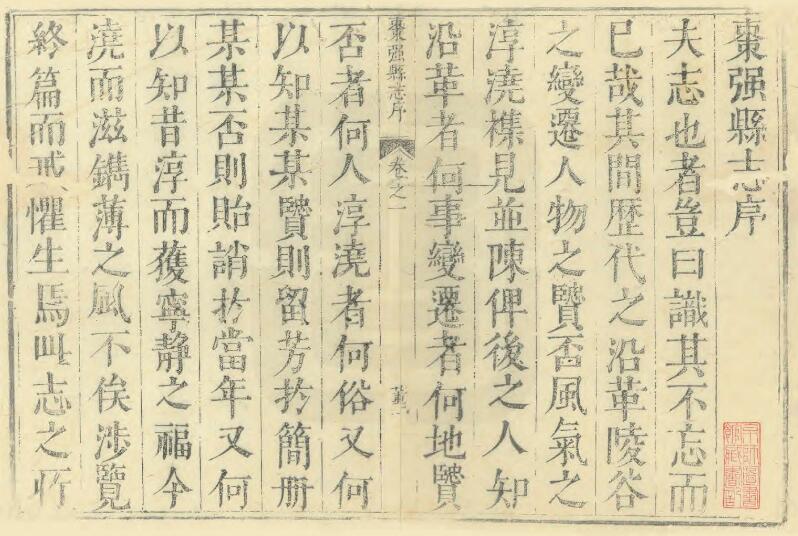 棗强縣志序
夫志也者豈曰識其不忘而
已哉其間歴代之沿革陵谷
之變遷人物之贒否風氣之
淳澆襍見並陳俾後之人知
沿革者何事變遷者何地贒
棗强縣志序 卷之一
否者何人淳澆者何俗又何
以知某某贒則留芳於簡册
某某否則貽誚於當年又何
以知昔淳而獲寧靜之福今
澆而滋鐫薄之風不俟涉覽
終篇而戒懼生焉此志之所